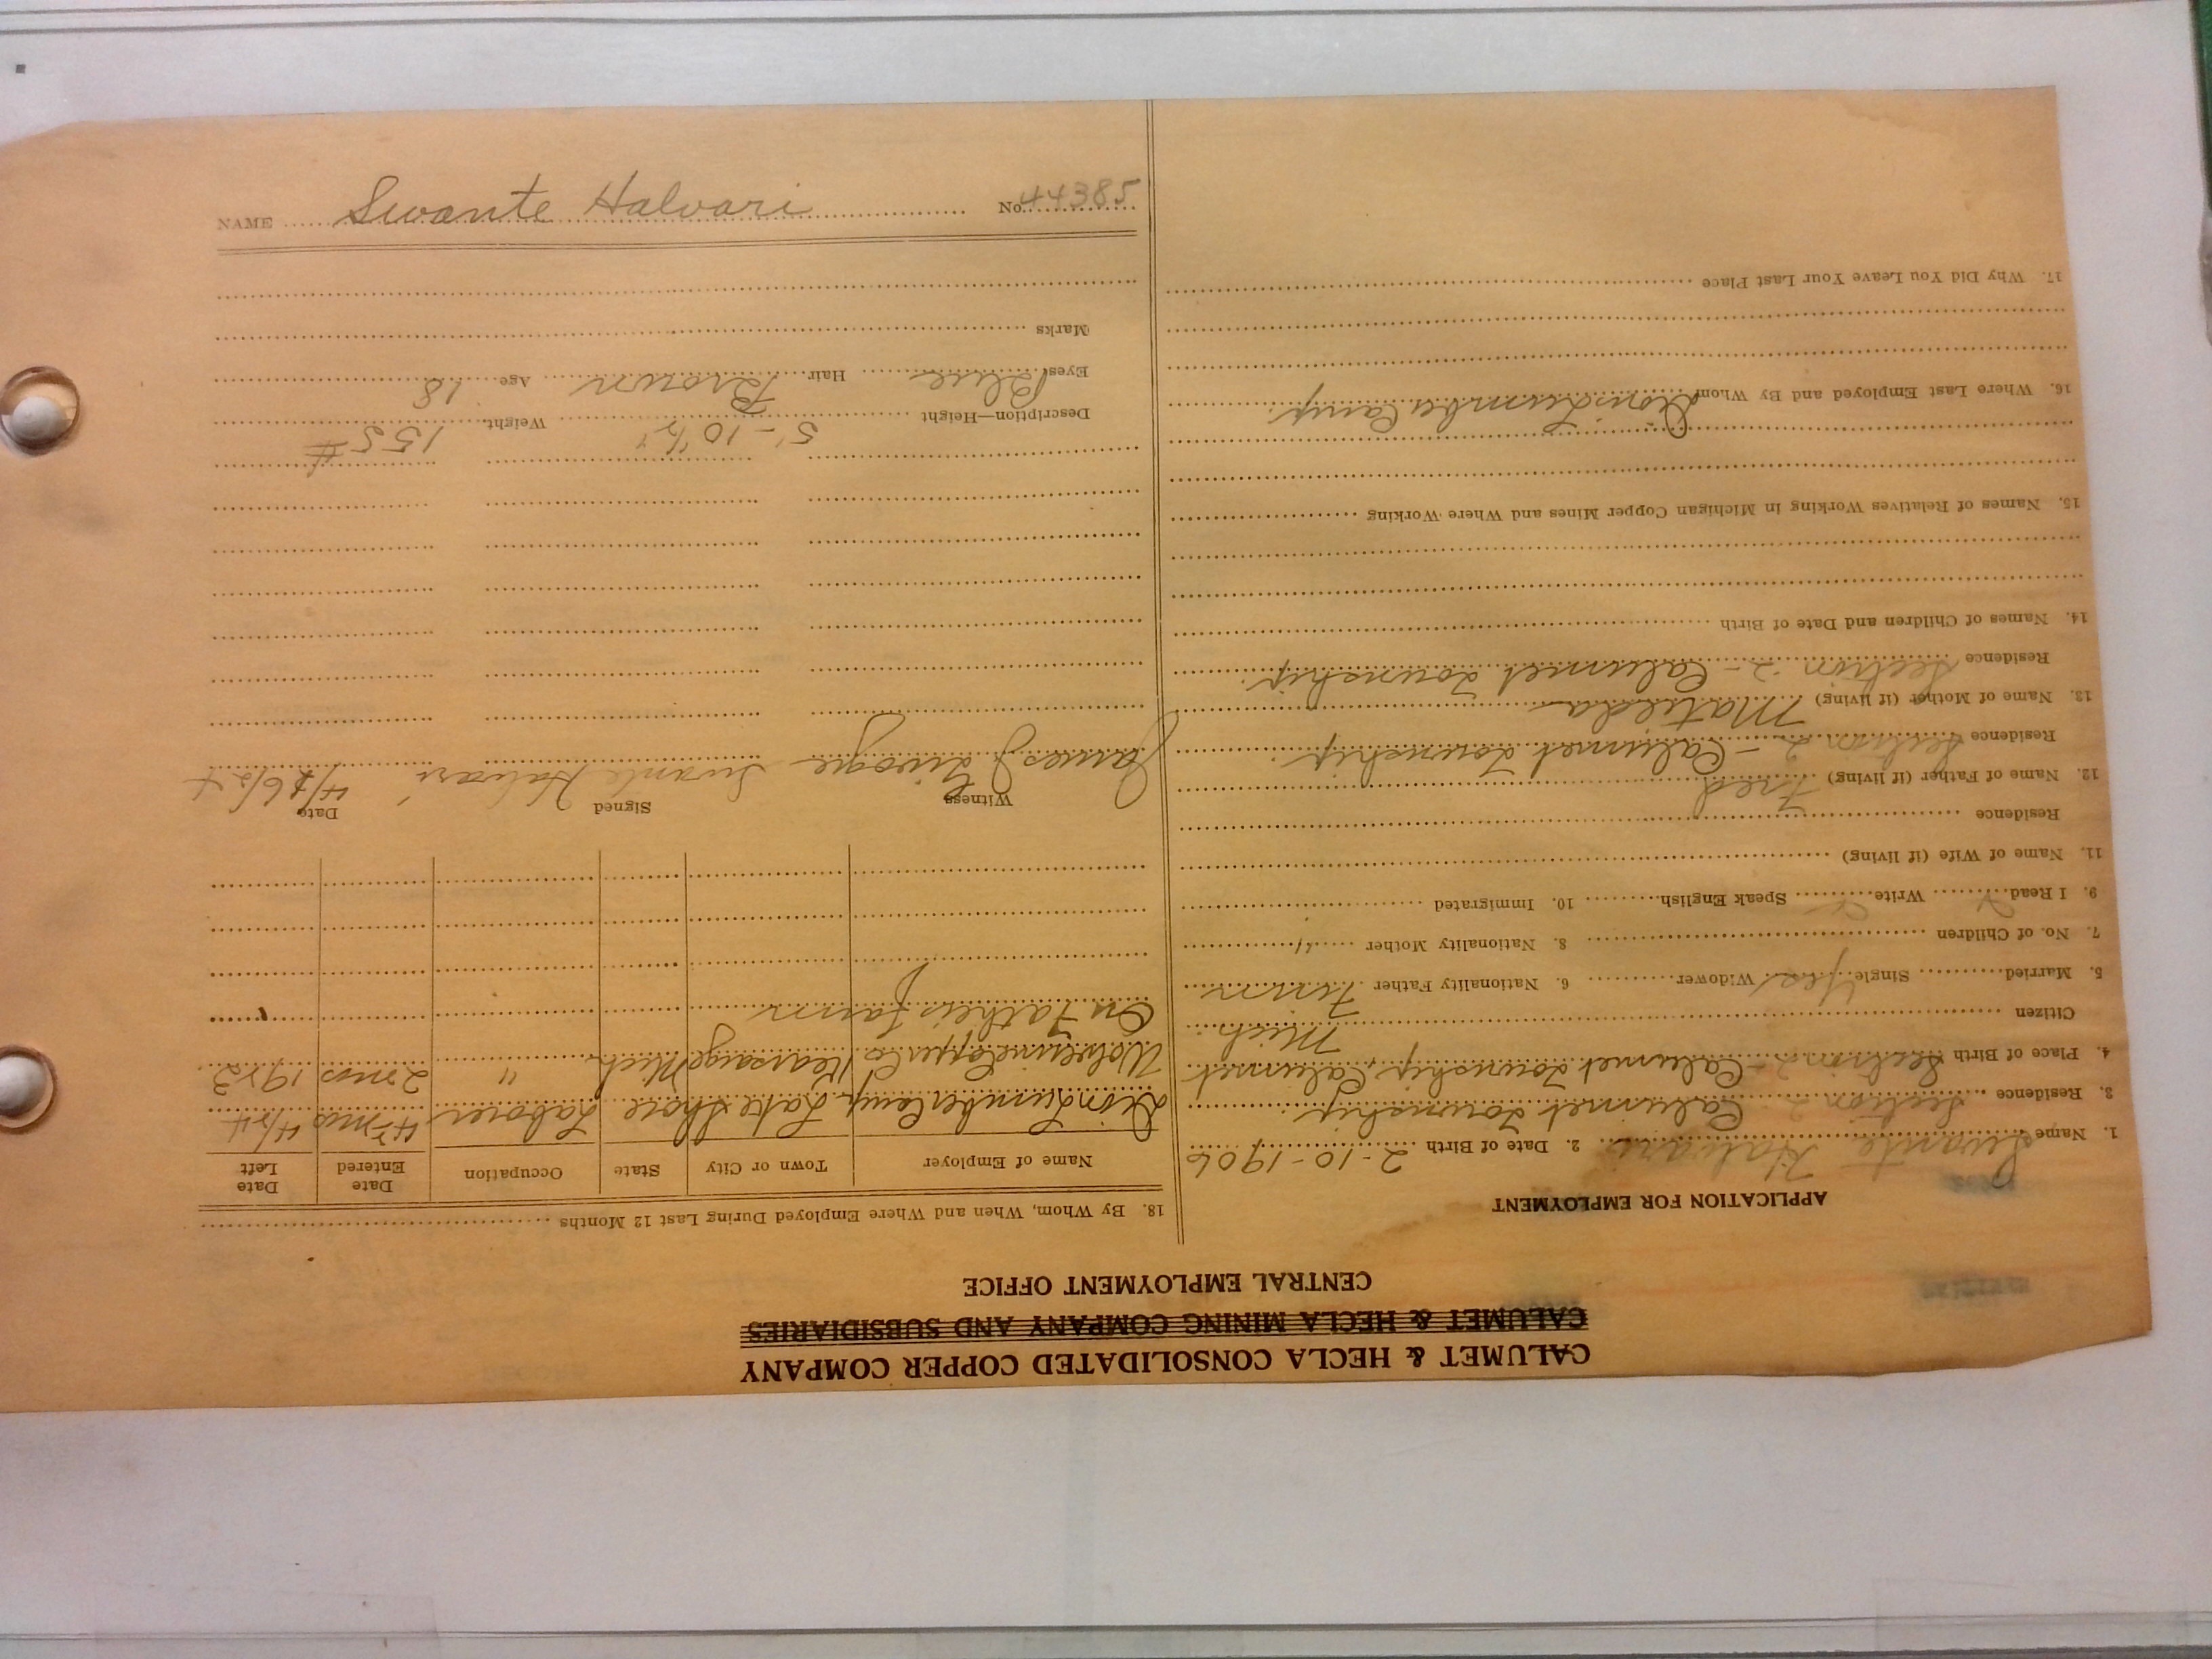 CALUMET & HECLA CONSOLIDATED COPPER COMPANY
CALUMET & HECLA MINING COMPANY AND SUBSIDIARIES
CENTRAL EMPLOYMENT OFFICE
APPLICATION FOR EMPLOYMENT
1. Name Swante Halvari 2. Date of Birth 2-10-1906
3. Residence Section 2 - Calumet Township
4. Place of Birth Section 2 - Calumet Township, Calumet
Mich
Citizen
5. Married Single Yes Widower 6. Nationality Father Finn
7. No. of Children 8. Nationality Mother "
9. I Read Write Speak English 10. Immigrated
11. Name of Wife (if living)
Residence
12. Name of Father (if living) Fred
Residence Section 2 - Calumet Township.
13. Name of Mother (if living) Matilda
Residence Section 2 - Calumet Township.
14. Names of Children and Date of Birth
15. Names of Relatives Working in Michigan Copper Mines and Where Working
16. Where Last Employed and By Whom Lumber Camp.
17. Why Did You Leave Your Last Place
18. By Whom, When and Where Employed During Last 12 Months
Name of Employer Town or City State Occupation Date Entered Date Left
Lumber Camp Lake Shore Laborer 4 mos 4/24
Wolverine Copper Co Kearsarge Mich " 2 mos 1923
On Father's farm
Witness Signed Date
James J. Swante Halvari 4/26/24
Description—Height 5'-10 1/2" Weight 155 #
Eyes Blue Hair Brown Age 18
Marks
NAME Swante Halvari No. 44385